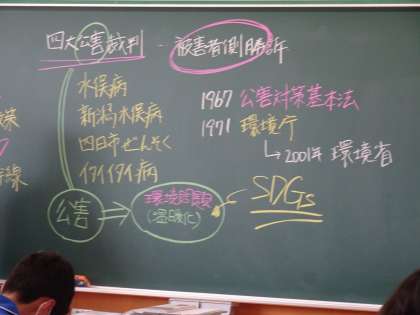 四大公害裁判 - 被害者側勝訴
水俣病
新潟水俣病
四日市ぜんそく
イタイイタイ病
1967 公害対策基本法
1971 環境庁
→2001年 環境省
公害 ⇒ 環境問題
(温暖化)
SDGs
策
線